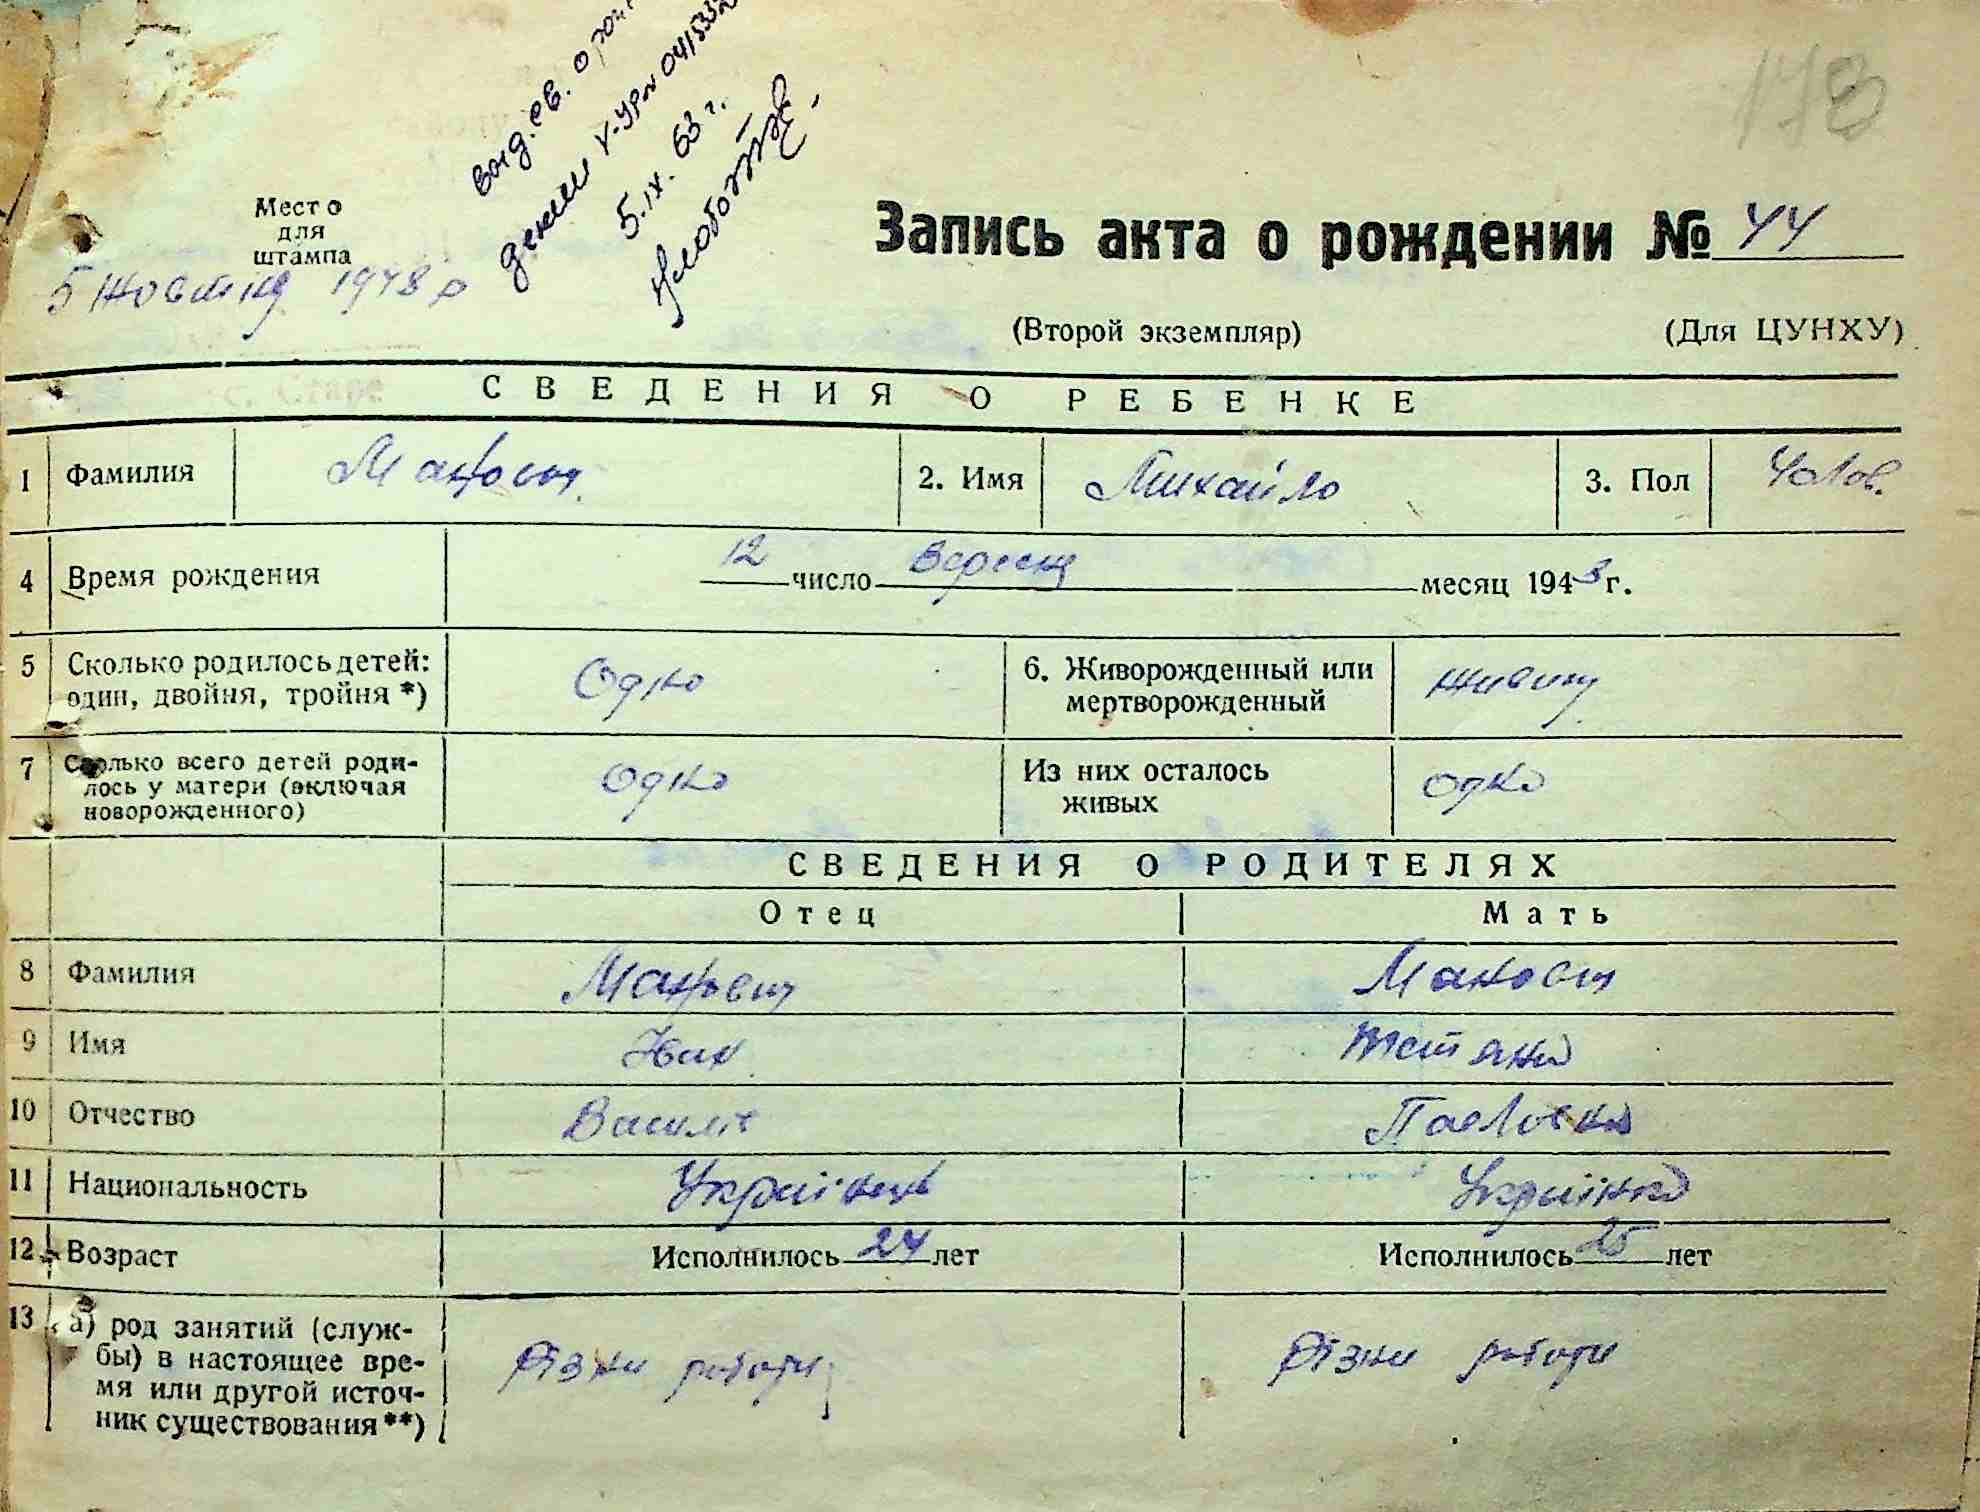 178
выд. св. о рож
дении V-УР № 0415332
5.IX.63 г.
Место
для
штампа
5 жовтня 1948 р
Запись акта о рождении № 44
(Второй экземпляр) (Для ЦУНХУ)
СВЕДЕНИЯ О РЕБЕНКЕ
1 Фамилия 2. Имя Михайло 3. Пол Чолов.
4 Время рождения 12 число Вересня месяц 1948 г.
5 Сколько родилось детей: Одно 6. Живорожденный или
один, двойня, тройня *) мертворожденный
7 Сколько всего детей роди- одно Из них осталось одно
лось у матери (включая живых
новорожденного)
СВЕДЕНИЯ О РОДИТЕЛЯХ
Отец Мать
8 Фамилия
9 Имя Іван Тетяна
10 Отчество Василів Павловна
11 Национальность Українець Українка
12 Возраст Исполнилось 24 лет Исполнилось 25 лет
13 а) род занятий (служ- різни роботи різни роботи
бы) в настоящее вре-
мя или другой источ-
ник существования **)